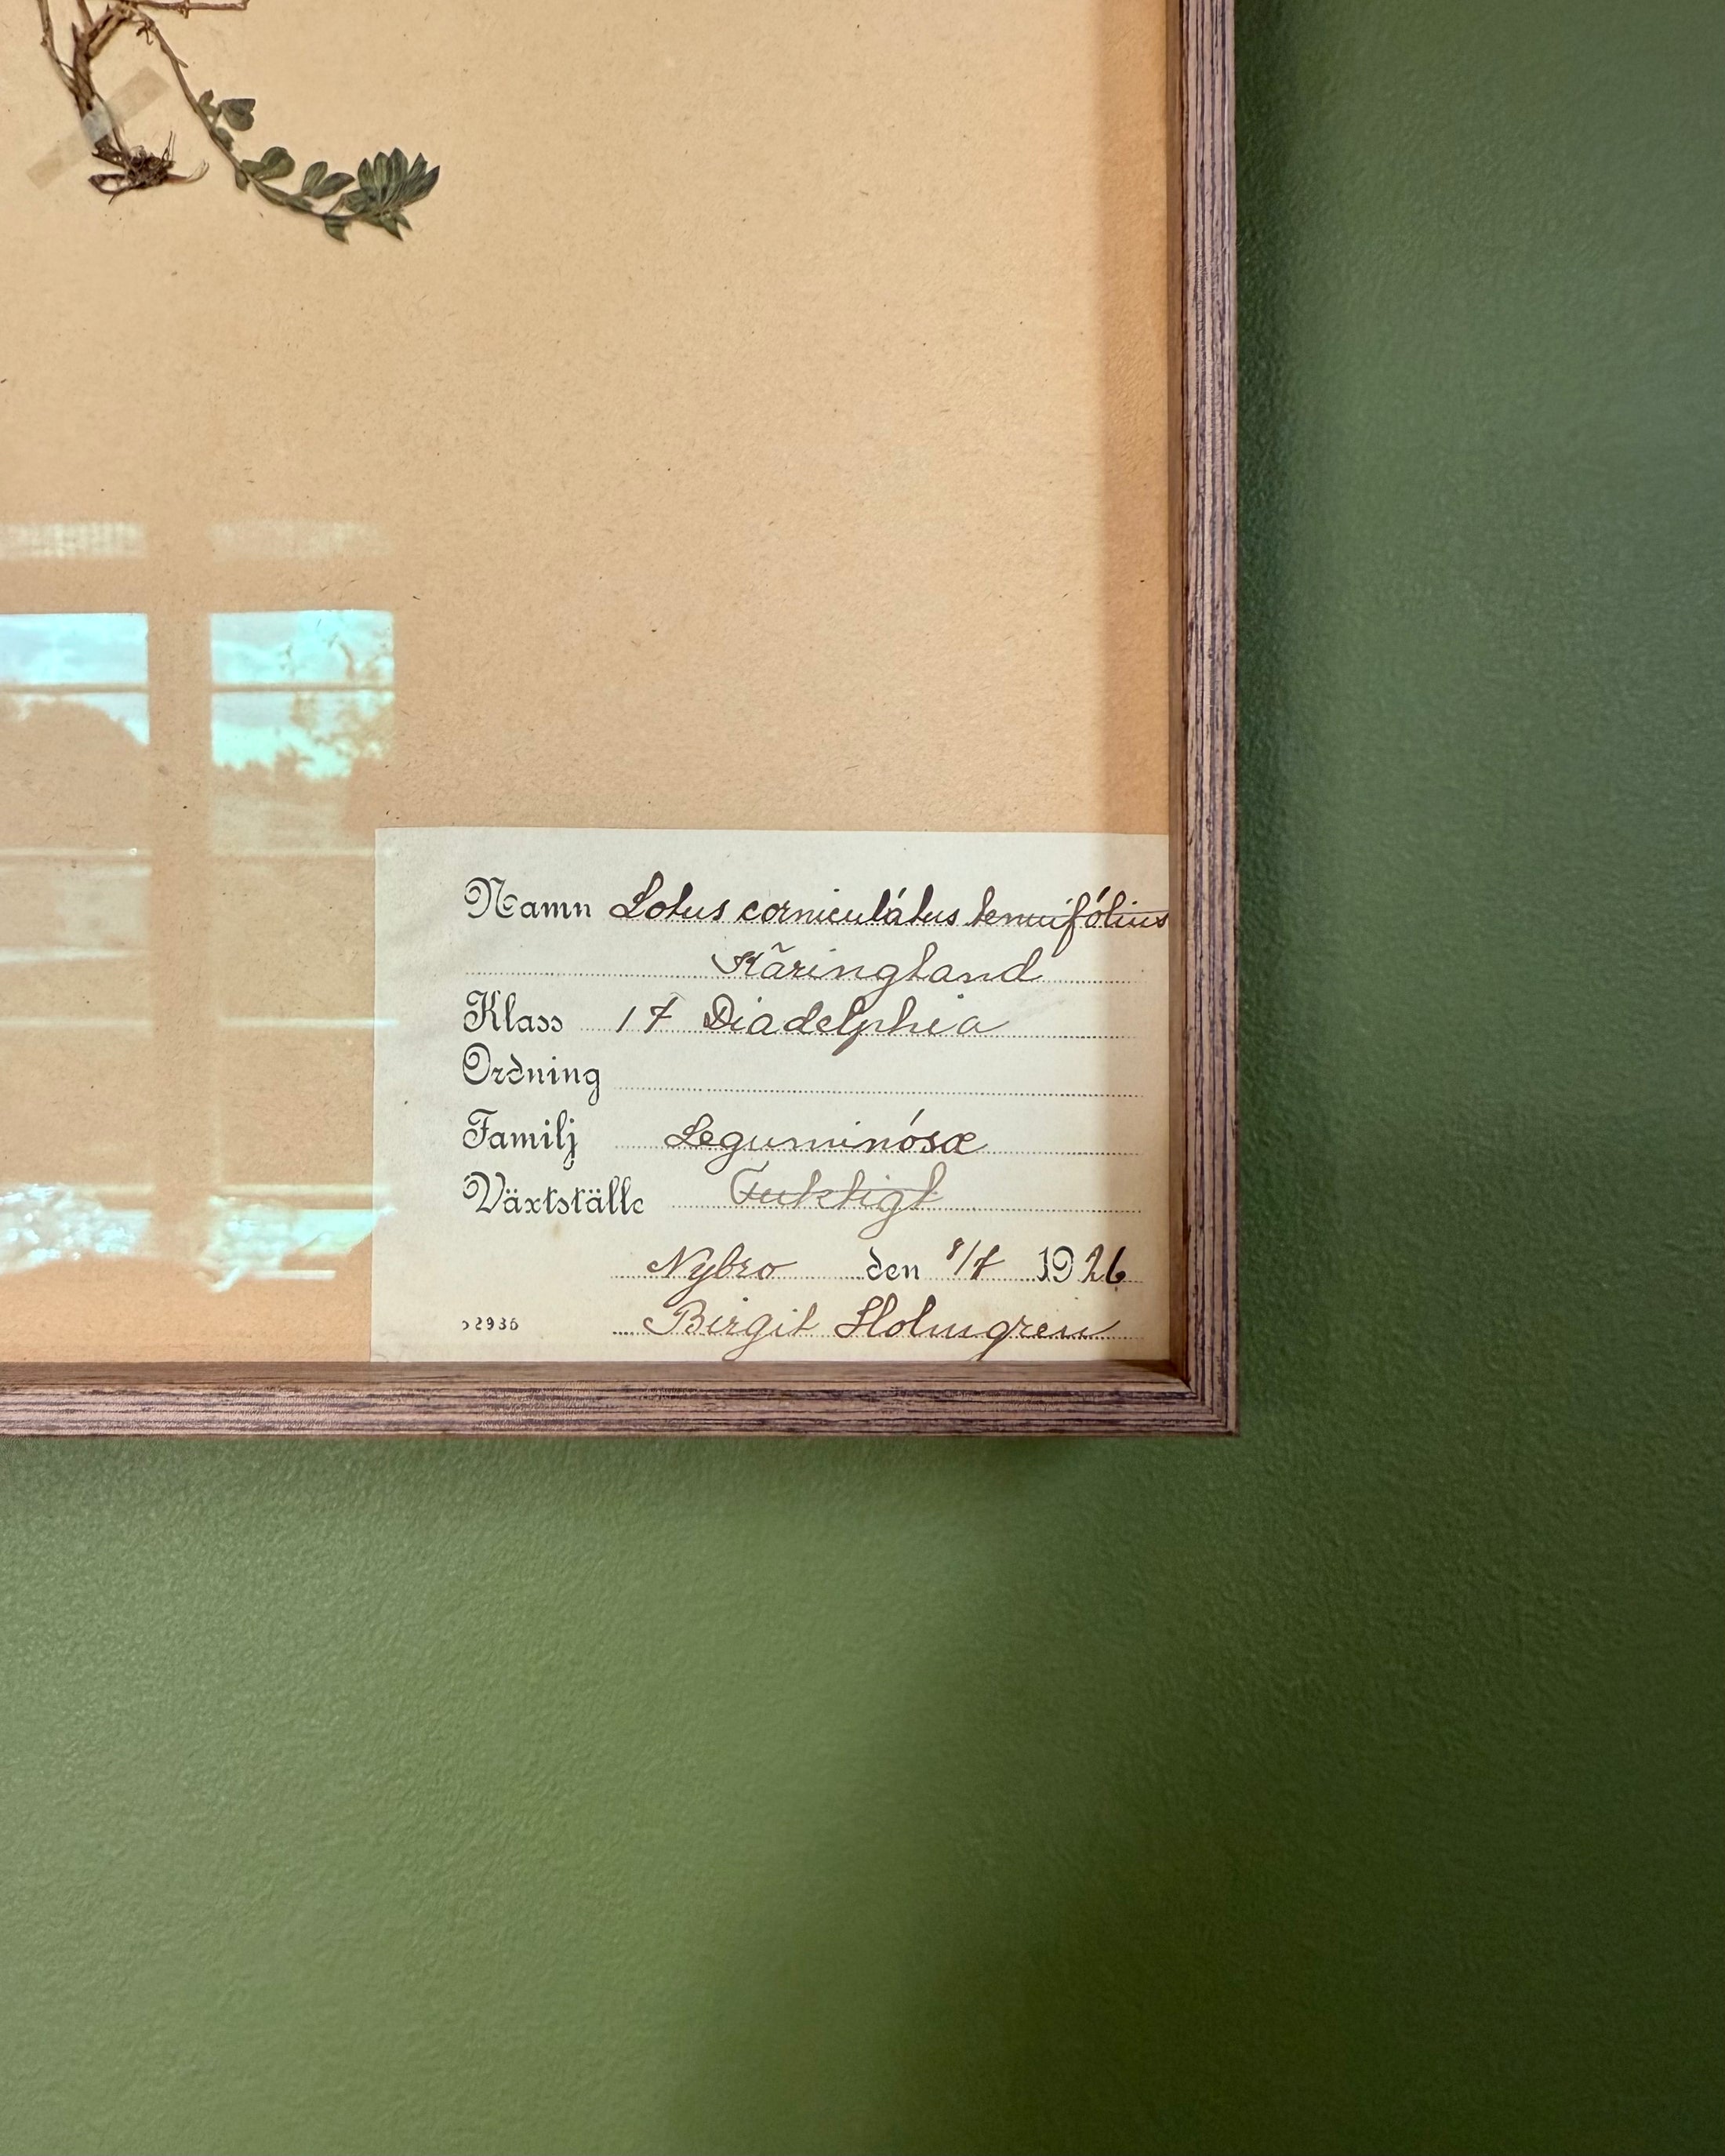 Namn Lotus corniculátus tenuifólius
Käringtand
Klass 17 Diadelphia
Ordning
Familj Leguminósæ
Växtställe Fuktigt
Nybro den 8/7 1926
Birgit Holmgren
52936